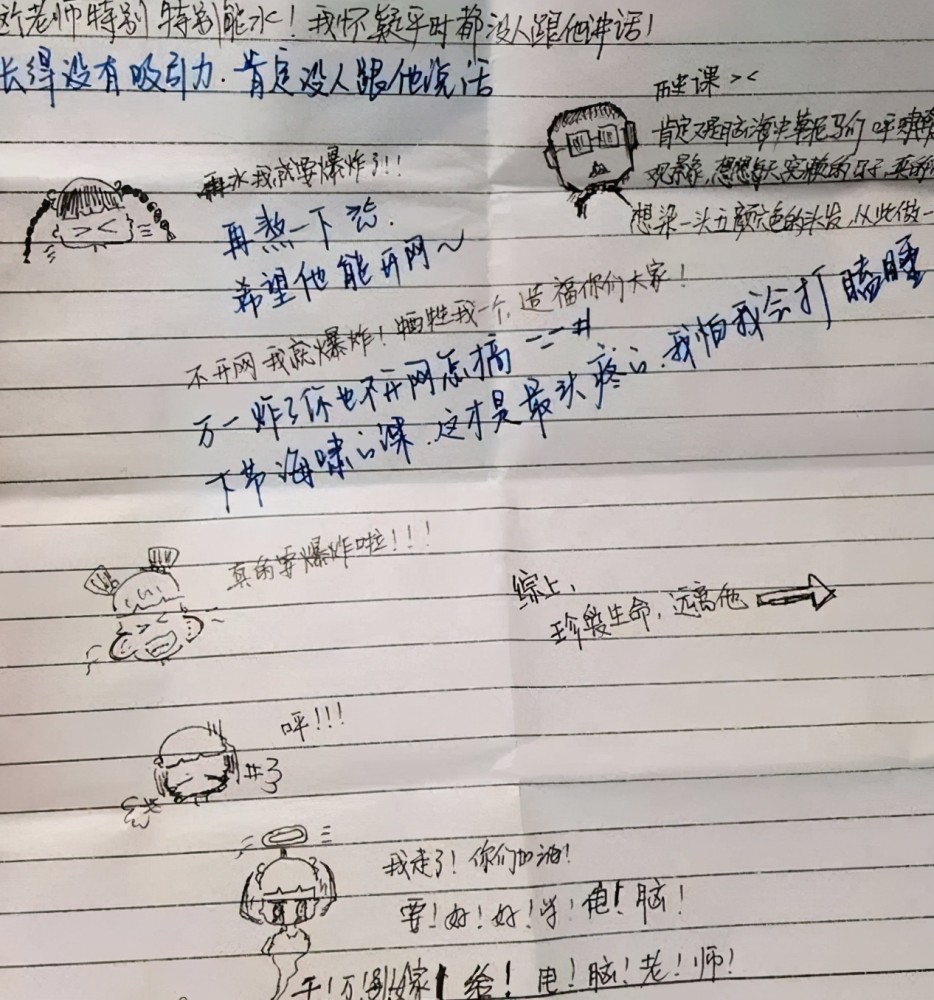 这老师特别特别能水！我怀疑平时都没人跟他讲话！
长得没有吸引力.肯定没人跟他说话
课><
肯定又是脑海中草尼马们呼啸
观景象,想想每天哭赖的日子,真的
想染一头五颜六色的头发,从此做一
再水我就要爆炸了!!!
再熬一下
希望他能开网~
不开网我就爆炸!牺牲我一个,造福你们大家!
万一炸了你也不开网怎搞
下节海啸的课.这才是最头疼的.我怕我会打瞌睡
真的要爆炸啦!!!
综上,
珍爱生命,远离他
呼!!!
#3
我走了!你们加油!
要!好!好!学!电!脑!
千!万!别!嫁!给!电!脑!老!师!